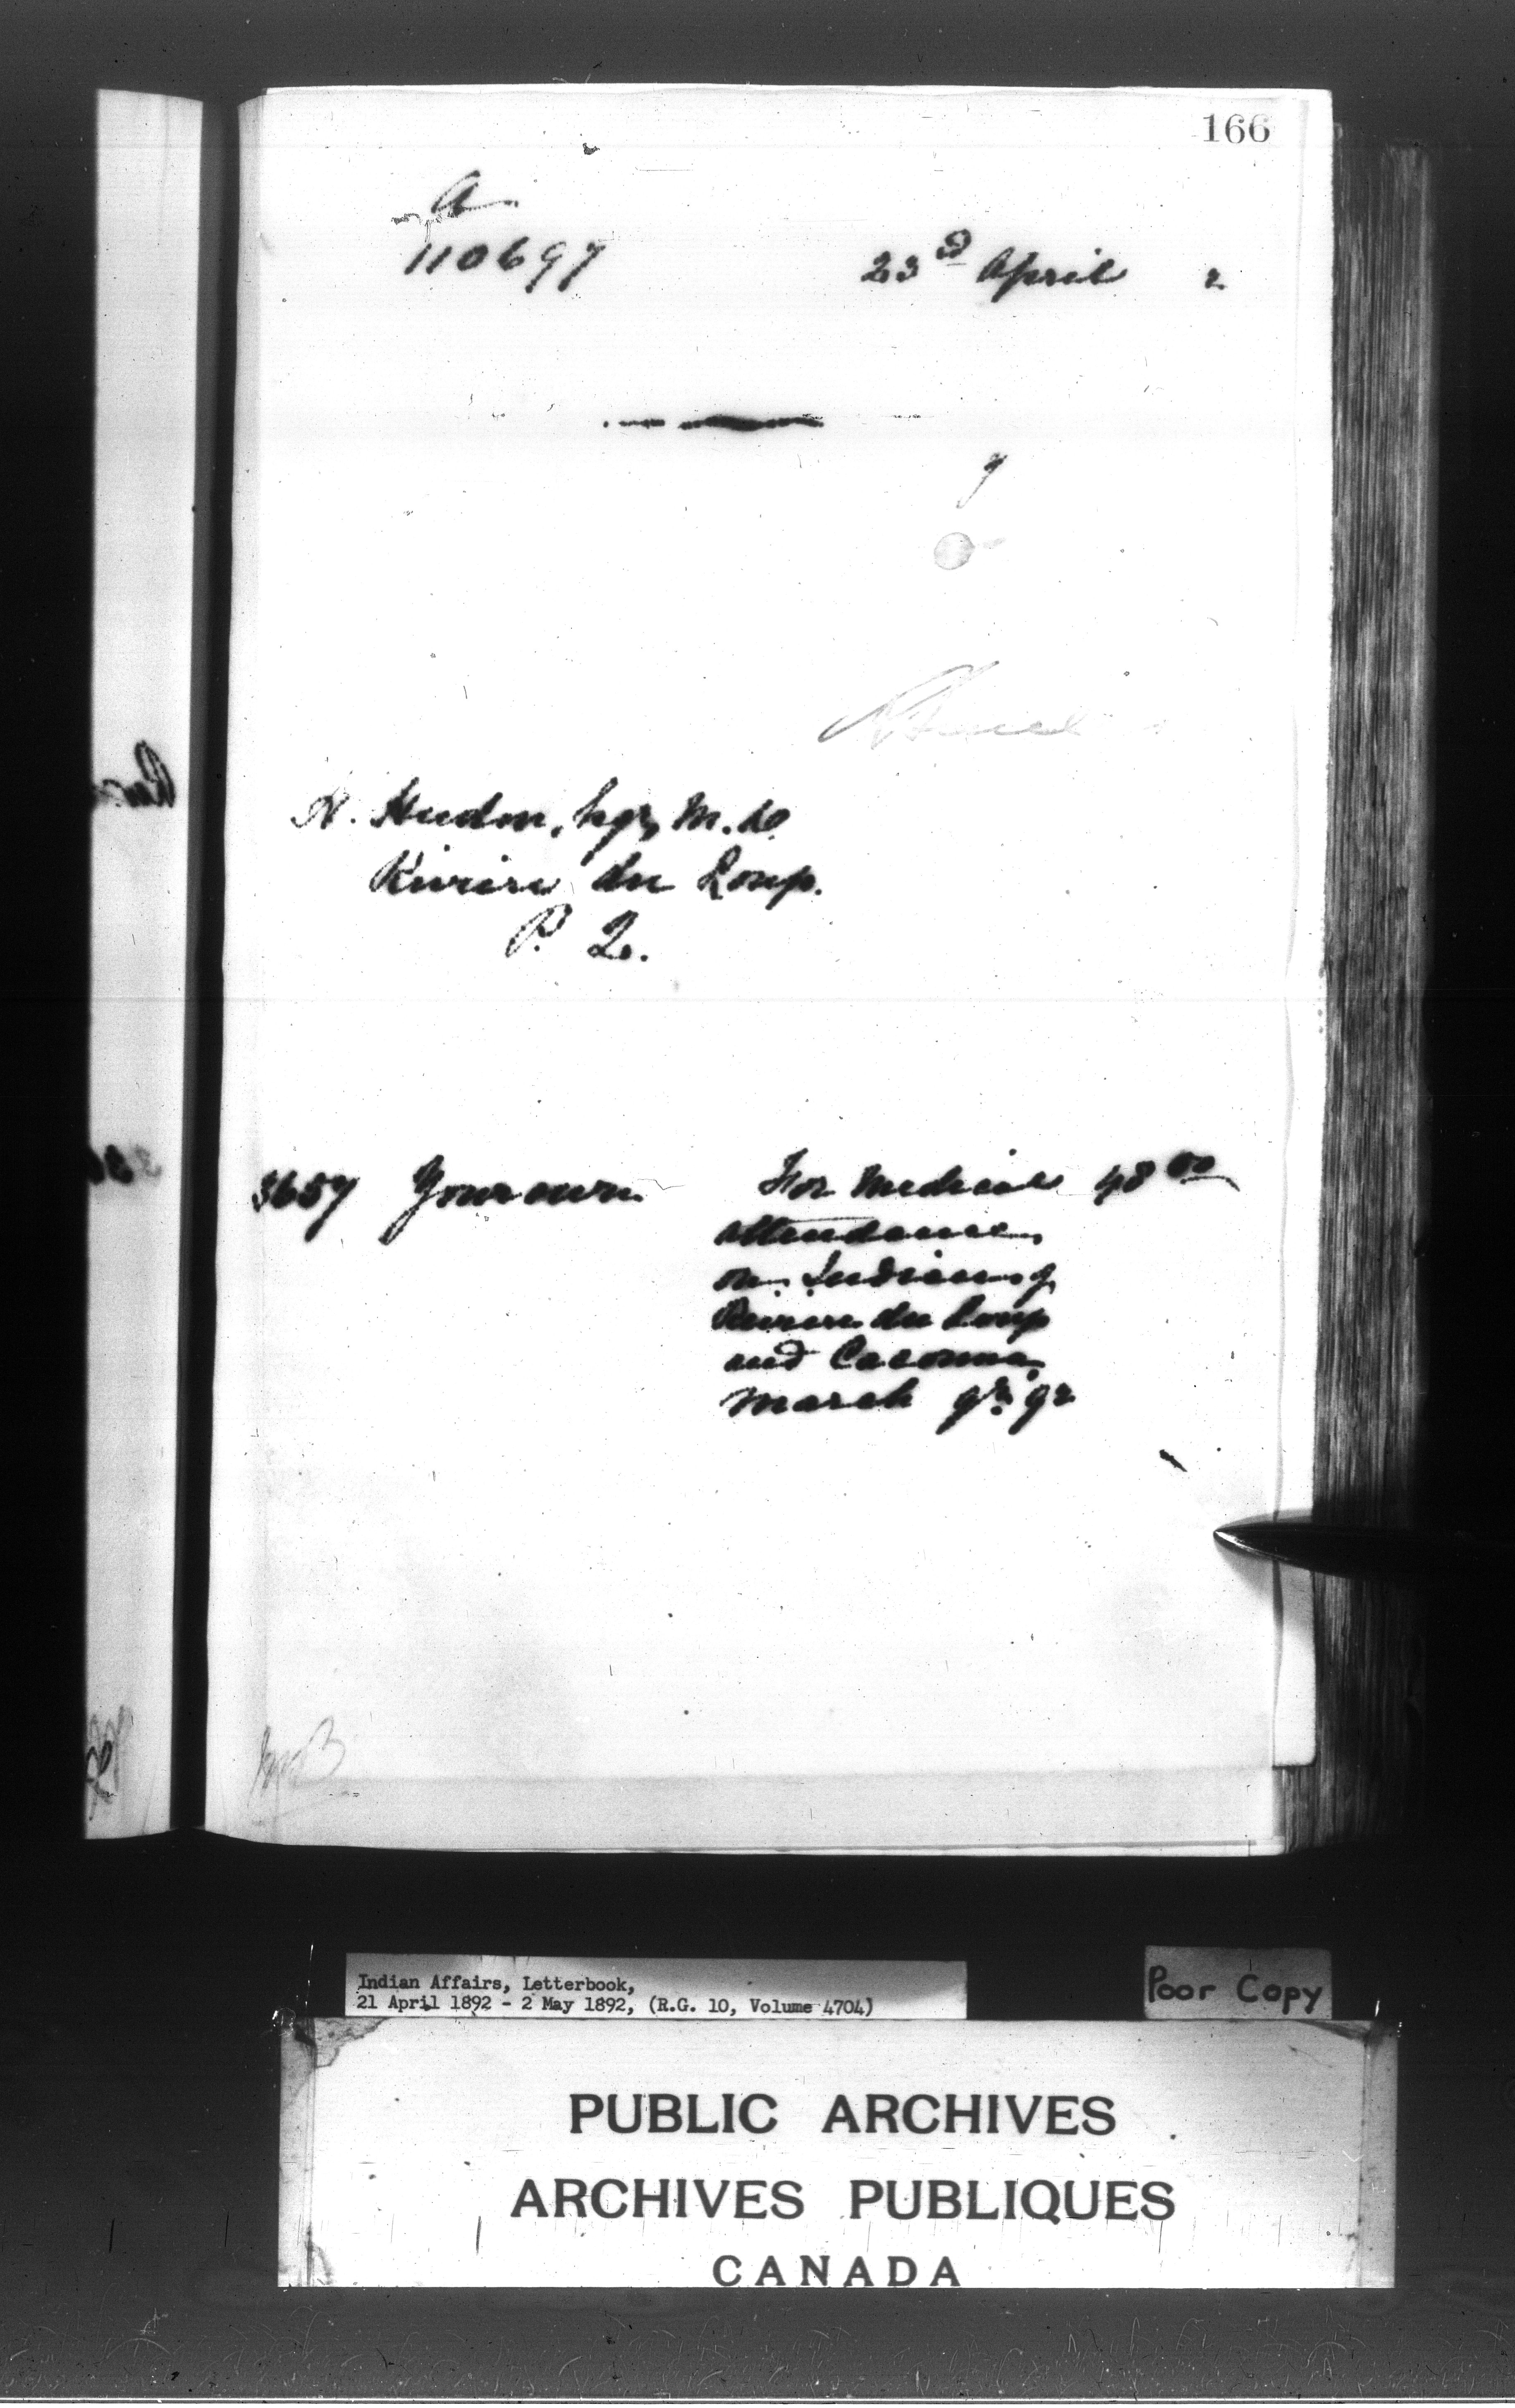 166
A
110697
23rd April 2
N. Hudon, Esq, M.D.
Riviere du Loup.
P. Q.
3657 Your own For Medical 48 00
attendance
on Indians of
Riviere du Loup
and Cacouna
March qr. 92
Indian Affairs, Letterbook,
21 April 1892 - 2 May 1892, (R.G. 10, Volume 4704)
Poor Copy
PUBLIC ARCHIVES
ARCHIVES PUBLIQUES
CANADA